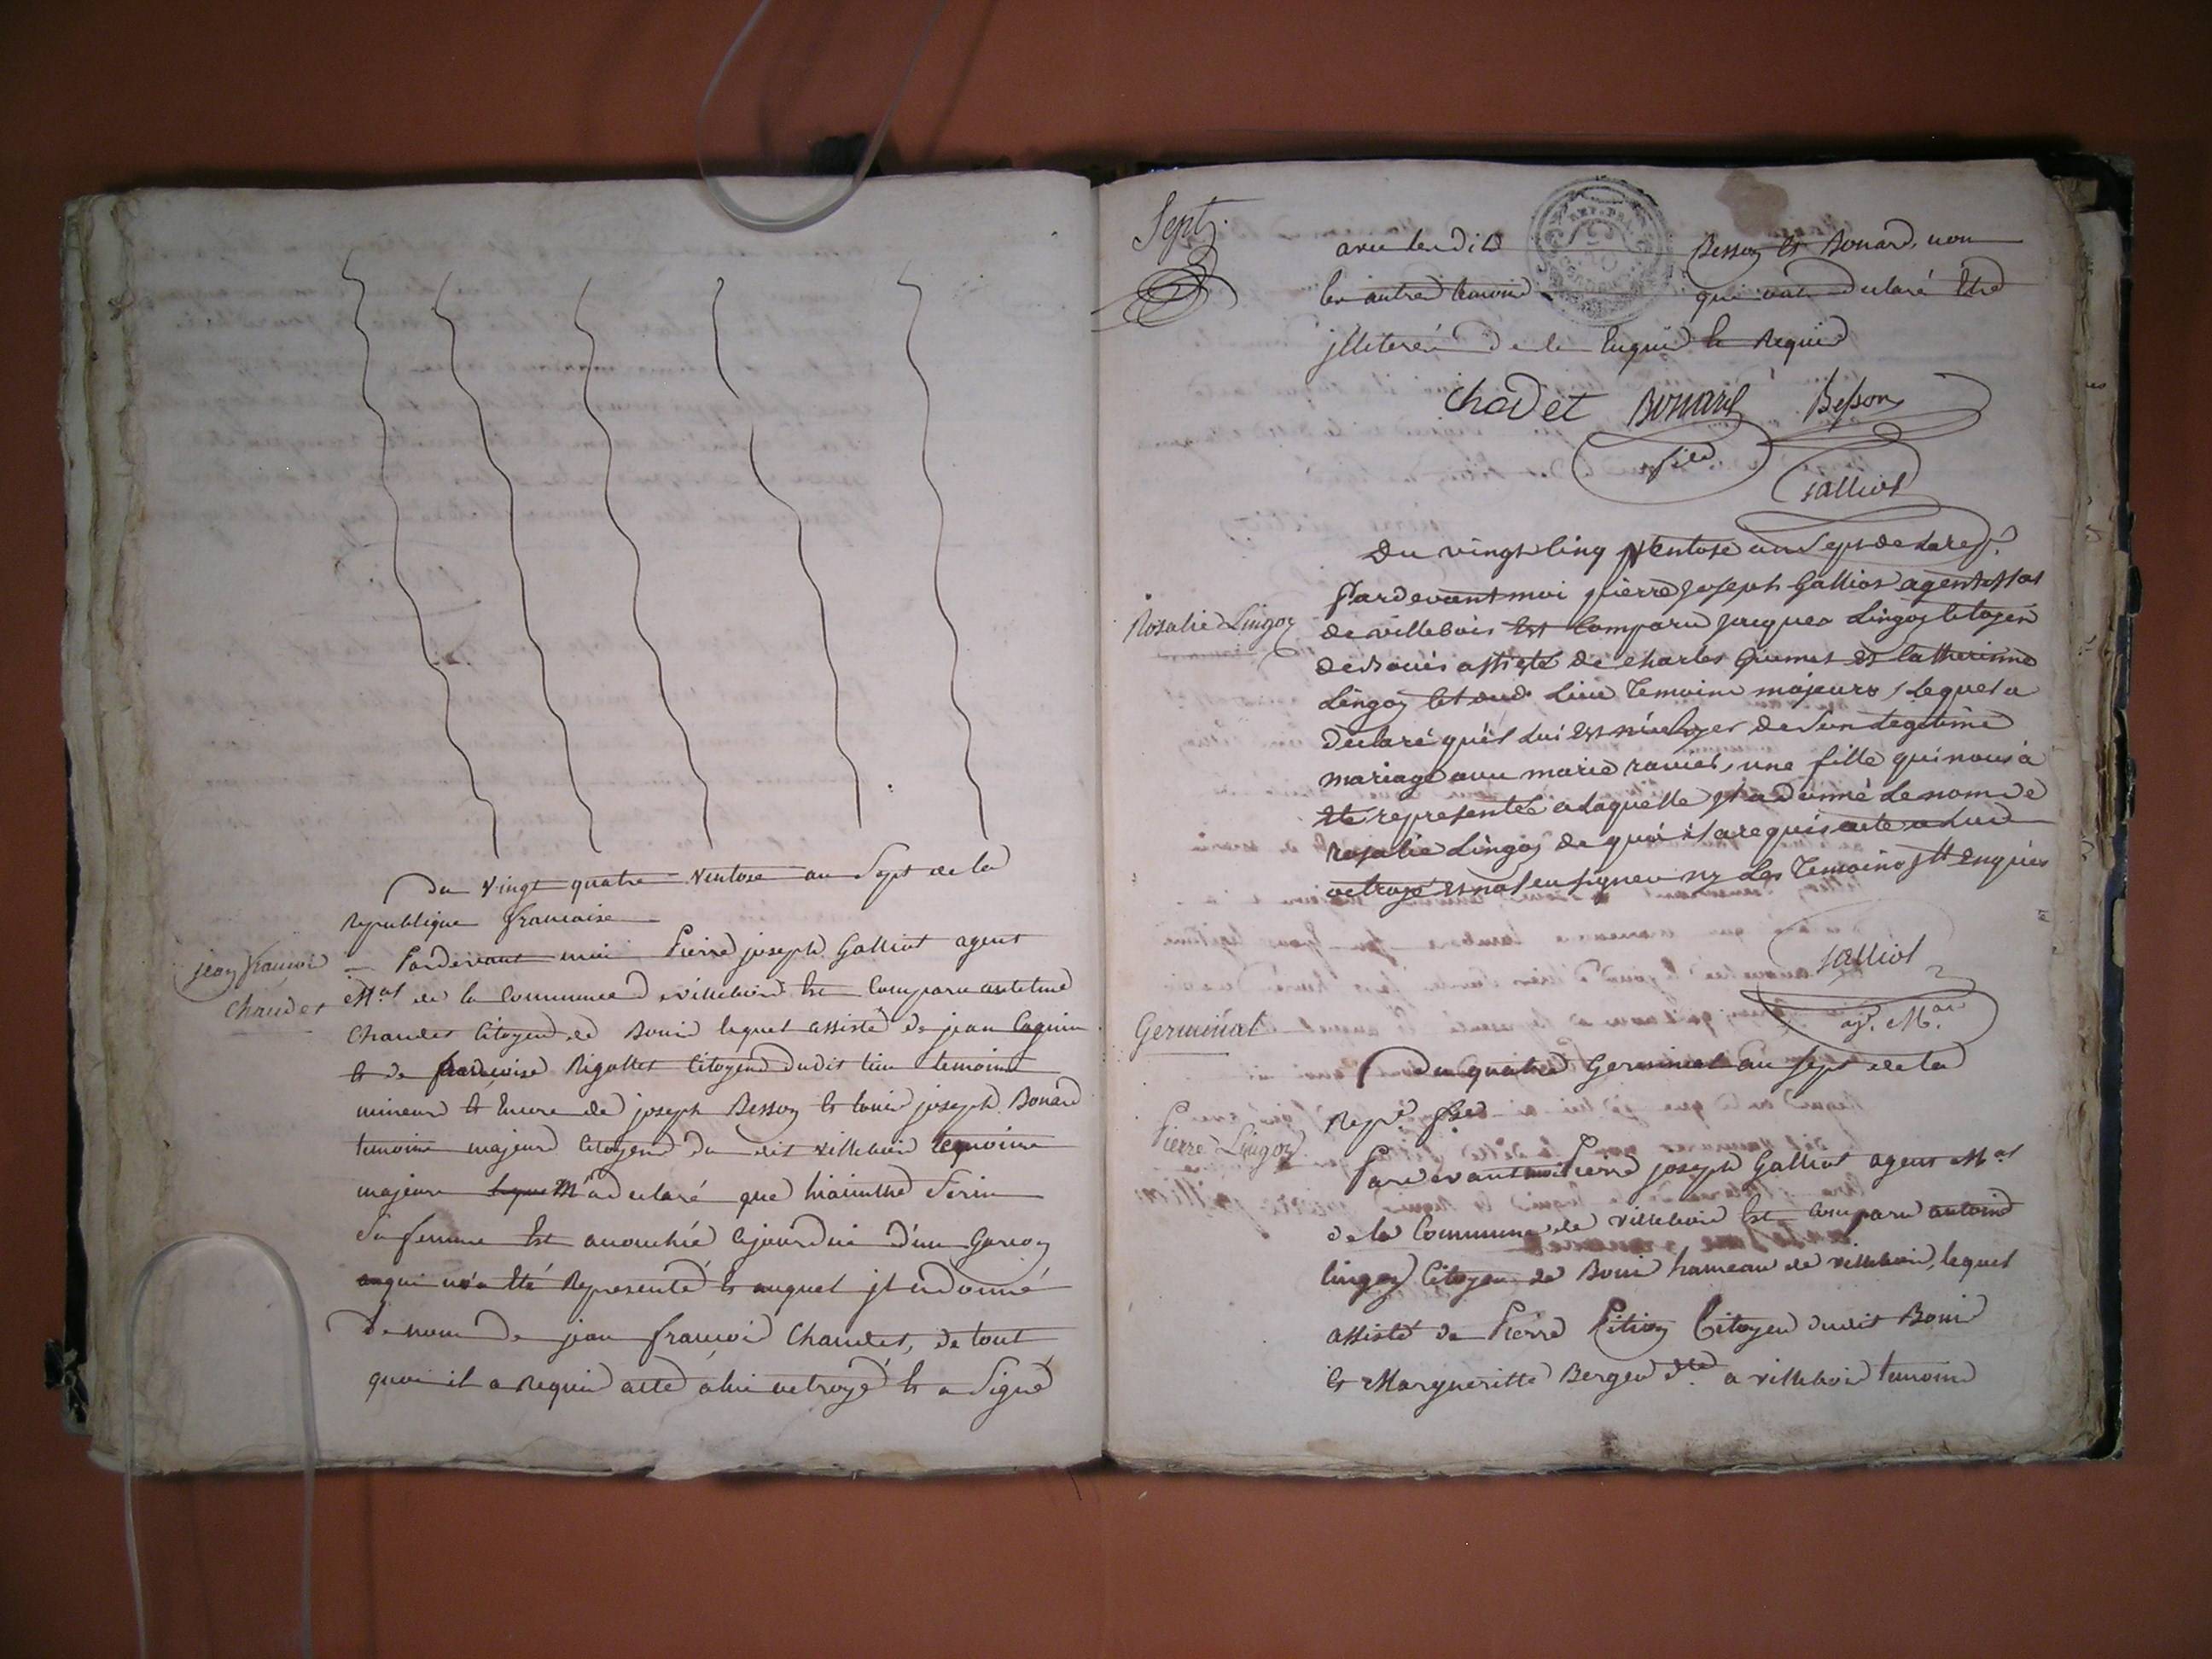 Du vingt quatre ventose an Sept de la
Republique francaise
jean francois
Chaudet
Pardevant moi Pierre joseph Galliot agent
Mal de la Commune de villebois Est Comparu
Chaudet Citoyen de Bouis lequel assisté de jean
Et de francoise Rigollet Citoyens dudit lieu temoins
mineurs Et Encore de joseph Besson Et louis joseph Bonard
temoins majeurs Citoyens du dit villebois temoins
majeurs m'a declaré que hiacinthe Serin
Sa femme Est accouchée cejourdui d'un Garcon
qui m'a Eté Representé Et auquel jl a donné
le nom de jean francois Chaudet, de tout
quoi il a Requis acte a lui octroyé Et a Signé
Sept
avec lesdits Besson Et Bonard, non
les autres temoins qui ont declaré Etre
jlliterés de ce Enquis Et Requis
chodet Bonard Besson
fils
Galliot
Du vingt Cinq Ventose an Sept de la rep.
Rosalie Lingoz
Pardevant moi pierre Joseph Galliot agent Mal
de villebois Est Comparu Jacques Lingoz Citoyen
de Bouis assisté de charles Grumet Et Catherinne
Lingoz Cit dud. Lieu Temoins majeurs, Lequel a
declaré qu'il Lui Est née hyer de Son Legitime
mariage avec marie ravier, une fille qui nous à
Eté representée a Laquelle jl a donné Le nom de
rosalie Lingoz de quoi il a requis acte a Lui
octroyé Et na Seu Signer ny Les Temoins jll Enquis
Galliot
ag. Mal
Germinal
Du quatre Germinal an Sept de la
Repe fse
Pierre Lingoz
Pardevant moi Pierre joseph Galliot agent Mal
de la Commune de villebois Est Comparu antoine
lingoz Citoyen de Bouis hameau de villebois, lequel
assisté de Pierre Pition Citoyen dudit Bouis
Et Margueritte Berger dte a villebois temoins